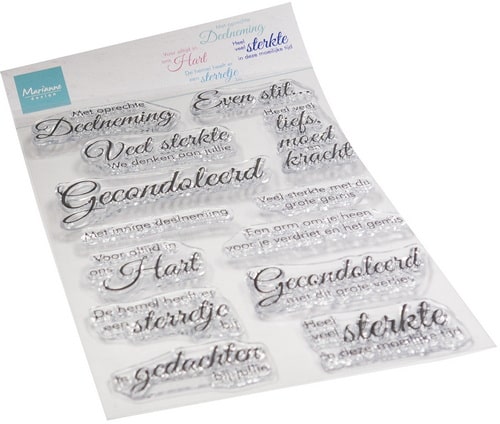 Met oprechte
Deelneming
Voor altijd in
ons Hart
Heel
veel sterkte
in deze moeilijke tijd
De hemel heeft er
een sterretje bij
Marianne
design
Met oprechte
Deelneming
Even stil...
Veel sterkte
We denken aan jullie
Heel veel
liefs,
moed
en
kracht
Gecondoleerd
Veel sterkte met dit
grote gemis
Met innige deelneming
Een arm om je heen
voor je verdriet en het gemis
Voor altijd in
ons Hart
Gecondoleerd
met dit grote verlies
De hemel heeft er
een sterretje bij
Heel
veel sterkte
in deze moeilijke tijd
In gedachten
bij jullie